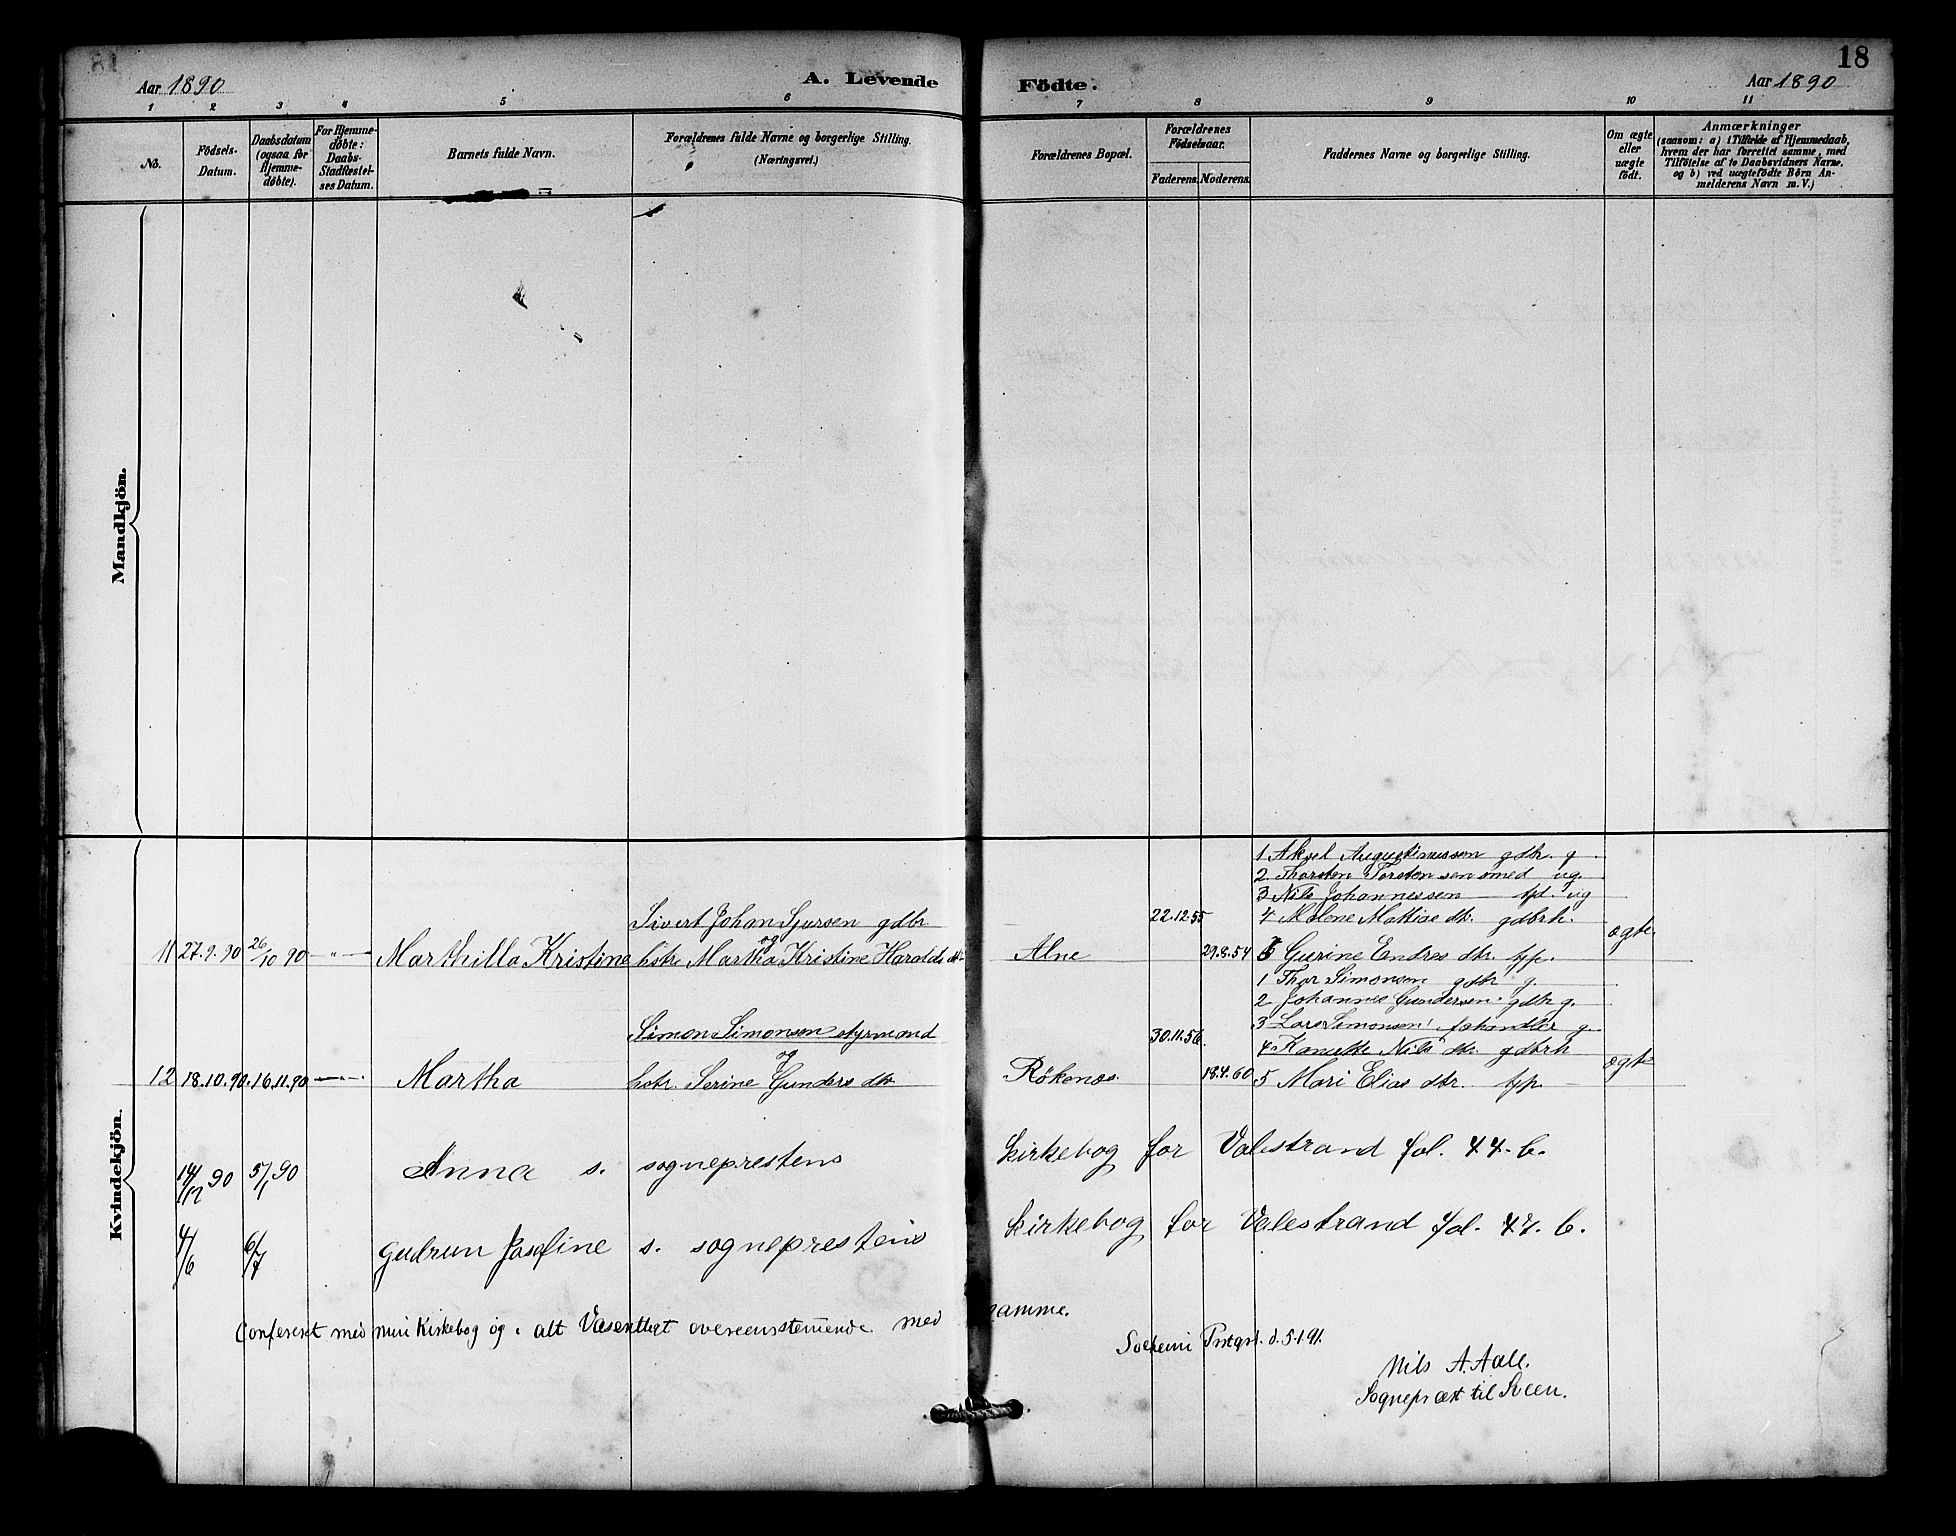 18
Aar 1890
A. Levende Födte.
Aar 1890
1 2 3 4 5 6 7 8 9 10 11
No.
Födsels-Datum.
Daabsdatum (ogsaa for Hjemme-döbte).
For Hjemme-döbte: Daabs-Stadfæstel-ses Datum.
Barnets fulde Navn.
Forældrenes fulde Navne og borgerlige Stilling. (Næringsvei.)
Forældrenes Bopæl.
Forældrenes Födselsaar.
Faderens.
Moderens.
Faddernes Navne og borgerlige Stilling.
Om ægte eller uægte födt.
Anmærkninger
(saasom: a) i Tilfælde af Hjemmedaab, hvem der har forrettet samme, med Tilföielse af to Daabsvidners Navne, og b) ved uægtefödte Börn An-melderens Navn m. V.)
Mandkjön.
Kvindekjön.
1 Aksel Augustinussen gdbr. g.
2 Thorsten Torstensen smed ug.
3 Nils Johannessen ug
Sivert Johan Sjursen gdbr
22.12.55
4 Malene Mattias dtr. gdbrh.
og
11 27.9.90 26/10 90 — " — Marthilla Kristine hstr Martha Kristine Haralds dtr Alne 29.8.54 5 Gurine Endres dtr. tp. ægte
1 Thor Simonsen gdbr g.
2 Johannes Gundersen gdbr g.
Simon Simonsen styrmand
30.11.56
3 Lars Simonsen fehandler g.
og
4 Kanutte Nils dtr gdbrh
12 18.10.90 16.11.90 — " — Martha hstr. Serine Gunders dtr Rökenes 18.4.60 5 Mari Elias dtr. tp. ægte
14/12 90 5/1 90 Anna s. sogneprestens kirkebog for Valestrand fol. 44. b.
4/6 6/7 Gudrun Josefine s. sogneprestens kirkebog for Valestrand fol. 47. b.
Confereret med min Kirkebog og i alt Væsentligt overeensstemmende med samme.
Solheim Prstgrd. d. 5.1.91.
Nils A. Aall.
Sognepræst til Sveen.